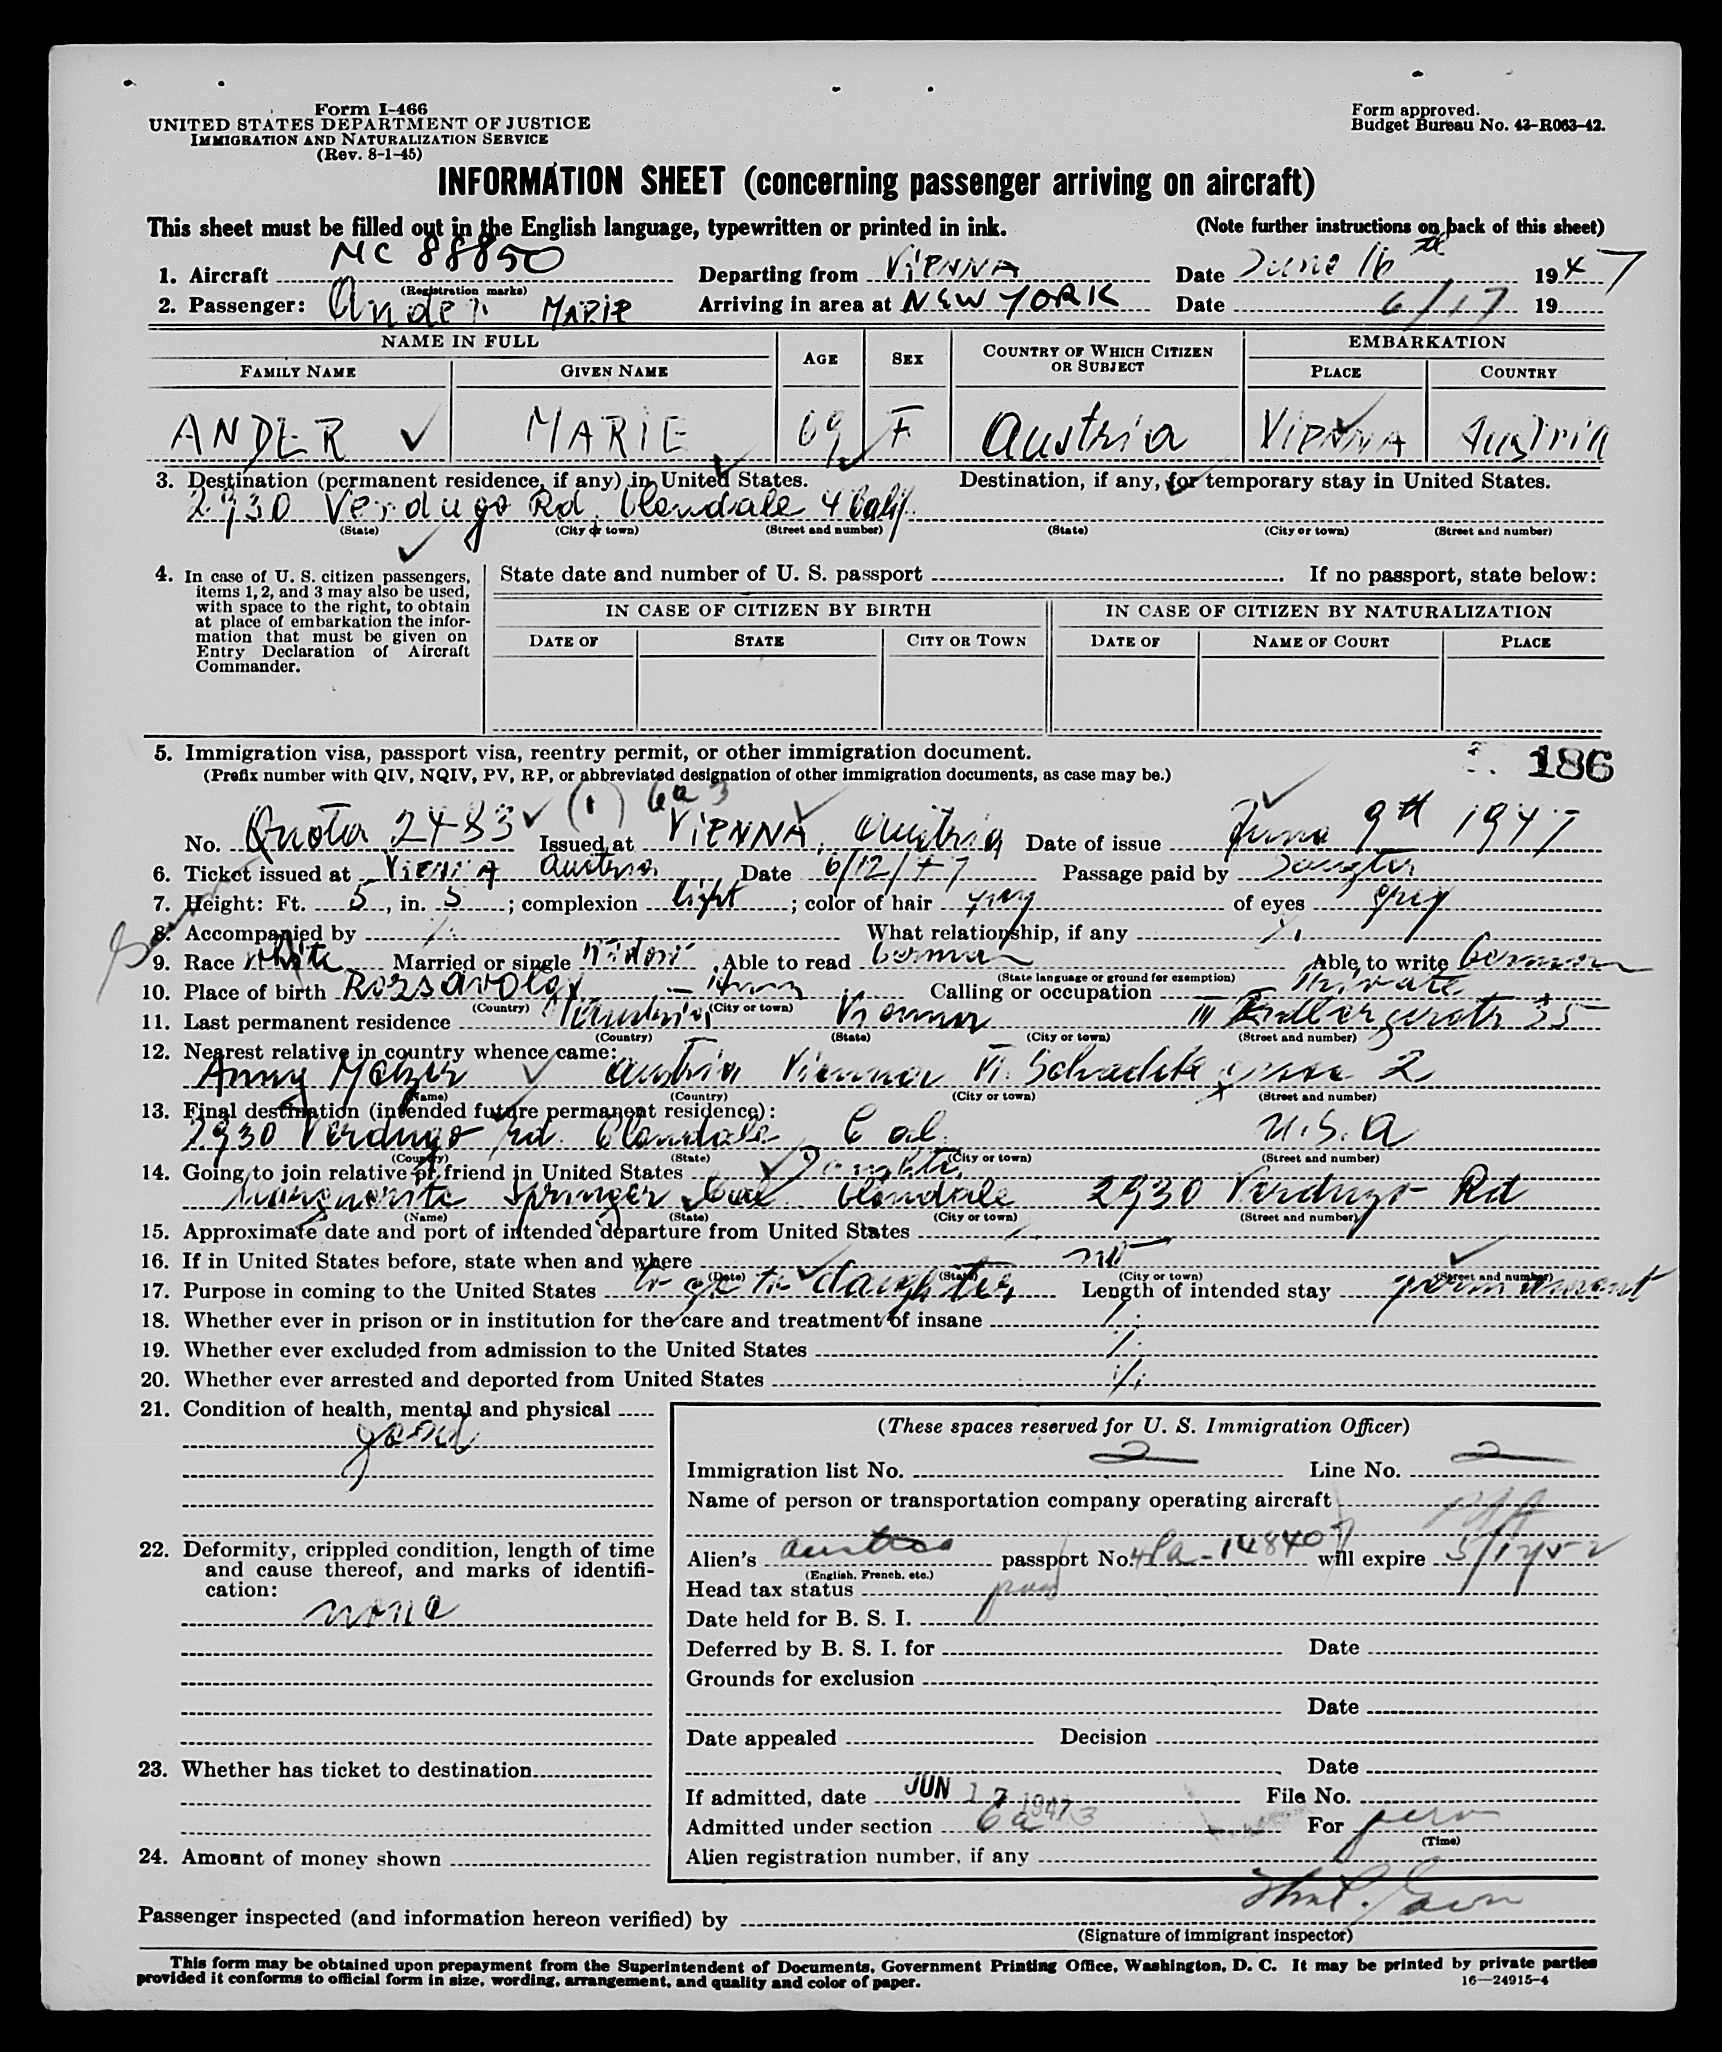 Form I-466
UNITED STATES DEPARTMENT OF JUSTICE
IMMIGRATION AND NATURALIZATION SERVICE
(Rev. 8-1-45)
Form approved.
Budget Bureau No. 43-R063-42.
INFORMATION SHEET (concerning passenger arriving on aircraft)
This sheet must be filled out in the English language, typewritten or printed in ink. (Note further instructions on back of this sheet)
1. Aircraft NC 88850 Departing from VIENNA Date June 16th 1947
(Registration marks)
2. Passenger: Ander MARIE Arriving in area at NEW YORK Date 6/17 19
NAME IN FULL AGE SEX COUNTRY OF WHICH CITIZEN OR SUBJECT EMBARKATION
FAMILY NAME GIVEN NAME PLACE COUNTRY
ANDER MARIE 69 F Austria VIENNA Austria
3. Destination (permanent residence, if any) in United States. Destination, if any, for temporary stay in United States.
2930 Verdugo Rd. Glendale 4 Calif.
(State) (City or town) (Street and number) (State) (City or town) (Street and number)
4. In case of U. S. citizen passengers, items 1, 2, and 3 may also be used, with space to the right, to obtain at place of embarkation the information that must be given on Entry Declaration of Aircraft Commander.
State date and number of U. S. passport . If no passport, state below:
IN CASE OF CITIZEN BY BIRTH IN CASE OF CITIZEN BY NATURALIZATION
DATE OF STATE CITY OR TOWN DATE OF NAME OF COURT PLACE
5. Immigration visa, passport visa, reentry permit, or other immigration document. 186
(Prefix number with QIV, NQIV, PV, RP, or abbreviated designation of other immigration documents, as case may be.)
(1) 6a 3
No. Quota 2483 Issued at VIENNA, Austria Date of issue June 9th 1947
6. Ticket issued at Vienna Austria Date 6/12/47 Passage paid by
7. Height: Ft. 5, in. 5; complexion light; color of hair grey of eyes grey
8. Accompanied by What relationship, if any
9. Race White Married or single Able to read German Able to write German
(State language or ground for exemption)
10. Place of birth Calling or occupation Private
(Country) (City or town)
11. Last permanent residence Austria Vienna III 35
(Country) (State) (City or town) (Street and number)
12. Nearest relative in country whence came:
Anny Austria Vienna 2
(Name) (Country) (City or town) (Street and number)
13. Final destination (intended future permanent residence):
2930 Verdugo Rd. Glendale Cal. U.S.A
(Country) (State) (City or town) (Street and number)
14. Going to join relative or friend in United States Daughter
Springer Cal. Glendale 2930 Verdugo Rd
(Name) (State) (City or town) (Street and number)
15. Approximate date and port of intended departure from United States
16. If in United States before, state when and where no
(Date) (State) (City or town) (Street and number)
17. Purpose in coming to the United States to go to daughter Length of intended stay permanent
18. Whether ever in prison or in institution for the care and treatment of insane
19. Whether ever excluded from admission to the United States
20. Whether ever arrested and deported from United States
21. Condition of health, mental and physical
good
22. Deformity, crippled condition, length of time and cause thereof, and marks of identification:
none
23. Whether has ticket to destination
24. Amount of money shown
(These spaces reserved for U. S. Immigration Officer)
Immigration list No. 2 Line No. 2
Name of person or transportation company operating aircraft
Alien's Austria passport No. will expire
(English, French, etc.)
Head tax status paid
Date held for B. S. I.
Deferred by B. S. I. for Date
Grounds for exclusion
Date
Date appealed Decision
Date
If admitted, date JUN 17 1947 File No.
Admitted under section 6a3 For perm
(Time)
Alien registration number, if any
Passenger inspected (and information hereon verified) by
(Signature of immigrant inspector)
This form may be obtained upon prepayment from the Superintendent of Documents, Government Printing Office, Washington, D. C. It may be printed by private parties
provided it conforms to official form in size, wording, arrangement, and quality and color of paper. 16—24915-4